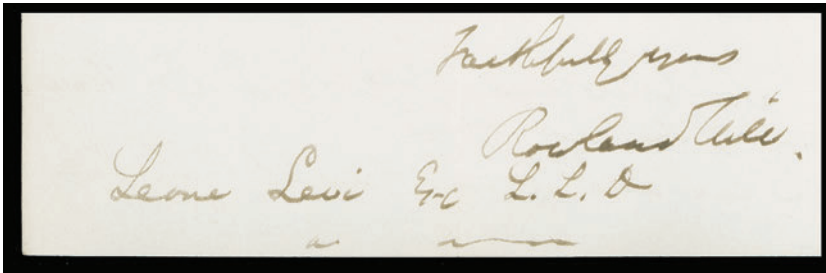 Faithfully yours
Rowland Hill.
Leone Levi Esq L.L.D